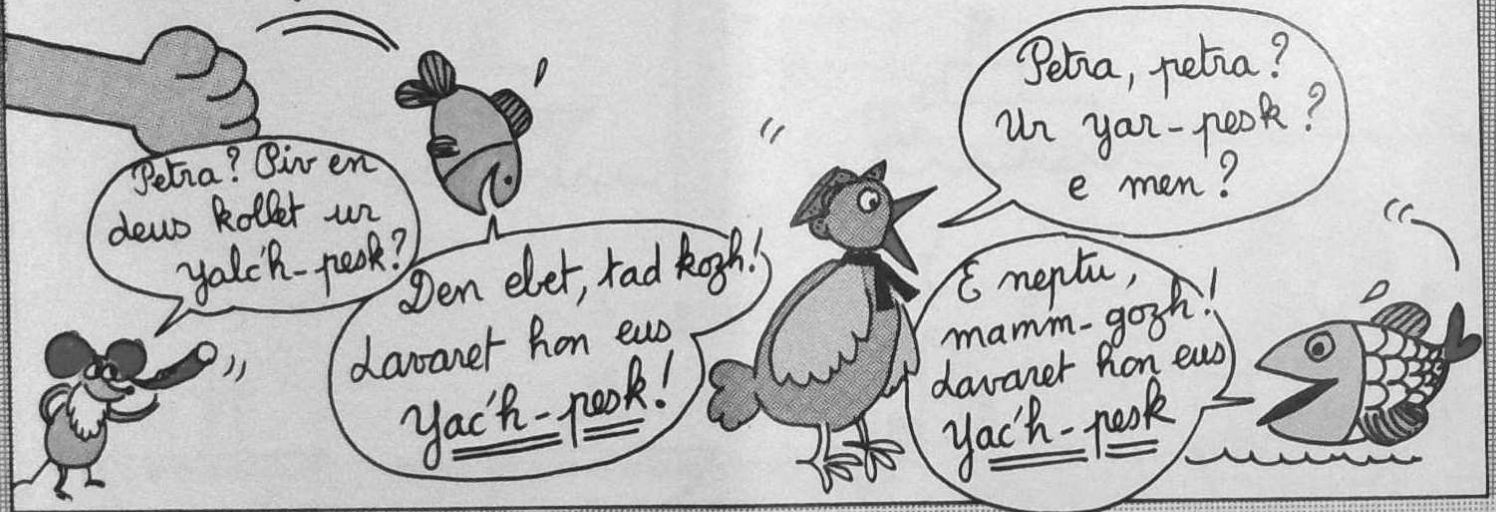 Petra? Piv en
deus kollet ur
yalc'h-pesk?
Den ebet, tad kozh!
Lavaret hon eus
Yac'h-pesk!
Petra, petra?
Ur yar-pesk?
e men?
E neptu,
mamm-gozh!
Lavaret hon eus
Yac'h-pesk